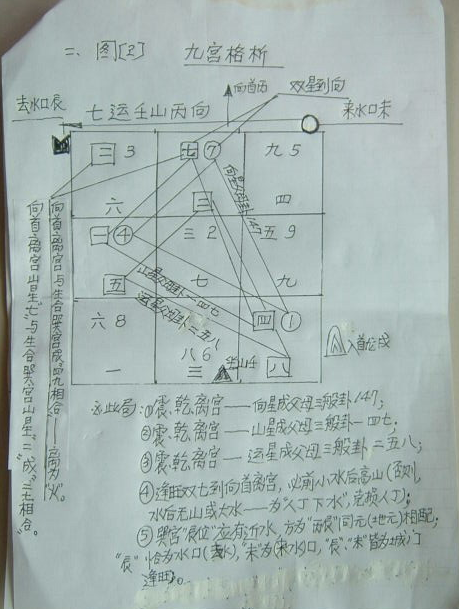 二、图[2] 九宫格析
向首丙 双星到向
去水口辰 七运壬山丙向 来水口未
三 3 七 ⑦ 九 5
六 二 四
一 ④ 三 2 五 9
五 七 九
六 8 八 6 四 ①
一 三 坐山壬 八
向星父母卦147
山星父母卦一四七
运星父母卦二五八
入首龙戌
向首离宫与生合巽宫成"四九相合"——
向首离宫山星"七"与生合巽宫山星"三"成"三七相合"。
此局:①震、乾、离宫——向星成父母三般卦147;
②震、乾、离宫——山星成父母三般卦一四七;
③震、乾、离宫——运星成父母三般卦二五八;
④逢旺双七到向首离宫,必前小水后高山(否则,
水后无山或大水——为"人丁下水",克损人丁);
⑤巽宫"辰位"应有近水,方为"丙辰"同元(地元)相配;
"辰"恰为水口(去水),"未"为来水口,"辰"、"未"皆为城门
逢旺。